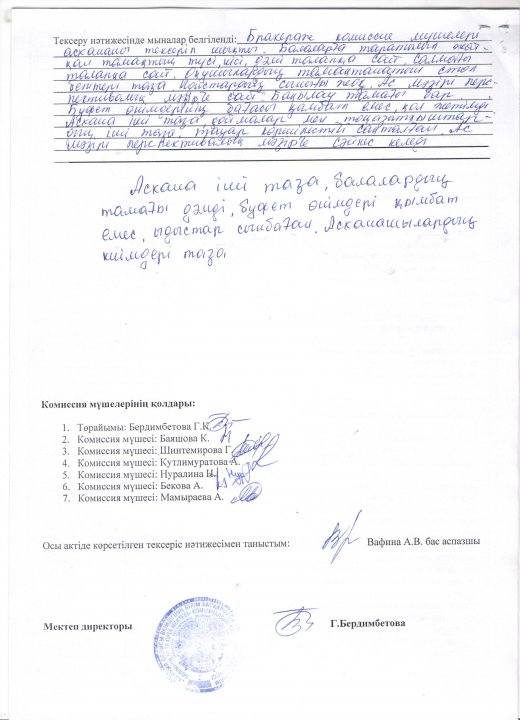 Тексеру нәтижесінде мыналар белгіленді: Бракераж комиссия мүшелері
асхананы тексеріп шықты. Балаларға таратылып жат-
қан тамақтың түсі, иісі, дәмі талапқа сай салмағы
талапқа сай. Оқушылардың тамақтанатын стол
беттері таза Ыдыстардың сынығы жоқ Ас мәзірі перс-
пективалық мәзірге сай Бақылау тамағы бар.
Буфет өнімдерінің бағасы қымбат емес, қол жетімді
Асхана іші таза, қоймалар мен тоңазытқыштар-
дың іші таза. Тауар көршілестігі сақталған Ас
мәзірі перспективалық мәзірге сәйкес келеді
Асхана іші таза, балалардың
тамағы дәмді, буфет өнімдері қымбат
емес, ыдыстар сынбаған. Асханашылардың
киімдері таза
Комиссия мүшелерінің қолдары:
1. Төрайымы: Бердимбетова Г.К.
2. Комиссия мүшесі: Баяшова К.
3. Комиссия мүшесі: Шинтемирова Г.
4. Комиссия мүшесі: Кутлимуратова А.
5. Комиссия мүшесі: Нуралина Н.
6. Комиссия мүшесі: Бекова А.
7. Комиссия мүшесі: Мамыраева А.
Осы актіде көрсетілген тексеріс нәтижесімен таныстым: Вафина А.В. бас аспазшы
Мектеп директоры Г.Бердимбетова